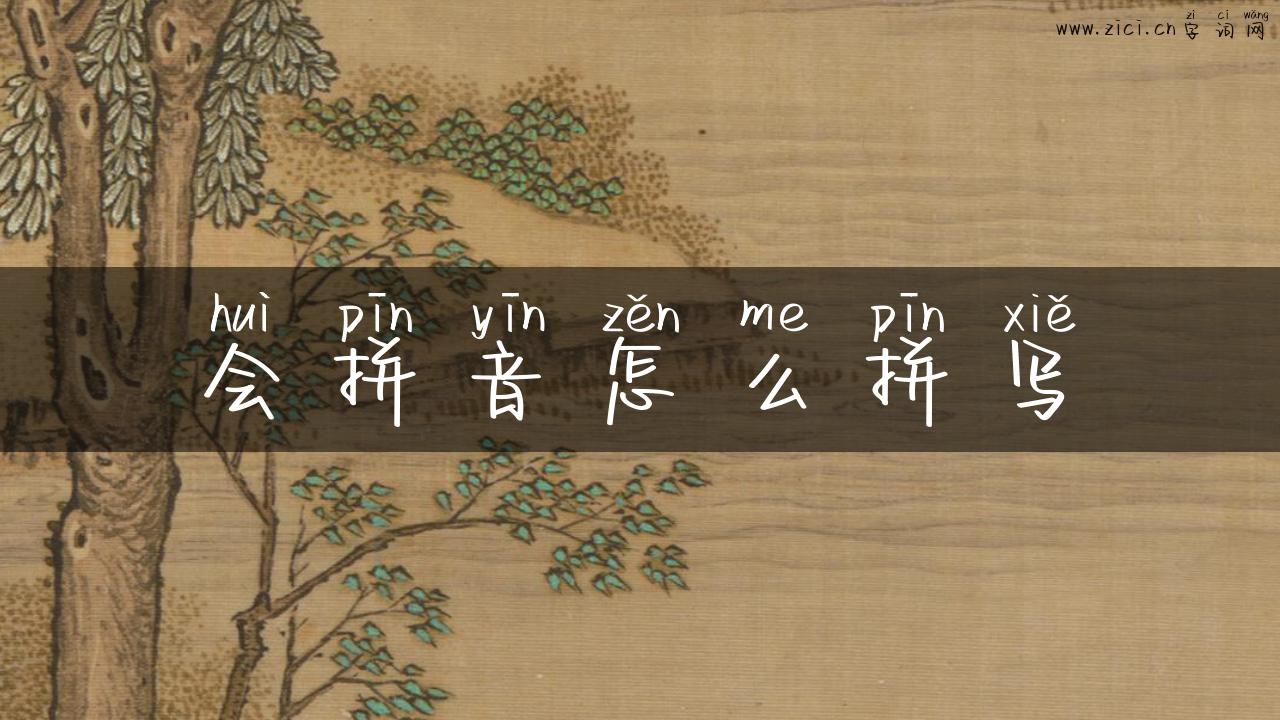 zì cí wǎng
www.zici.cn 字词网
huì pīn yīn zěn me pīn xiě
会拼音怎么拼写